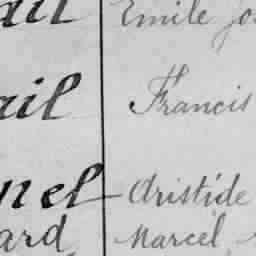 ail Emile Jo
ail Francis
nel Aristide
ard Marcel